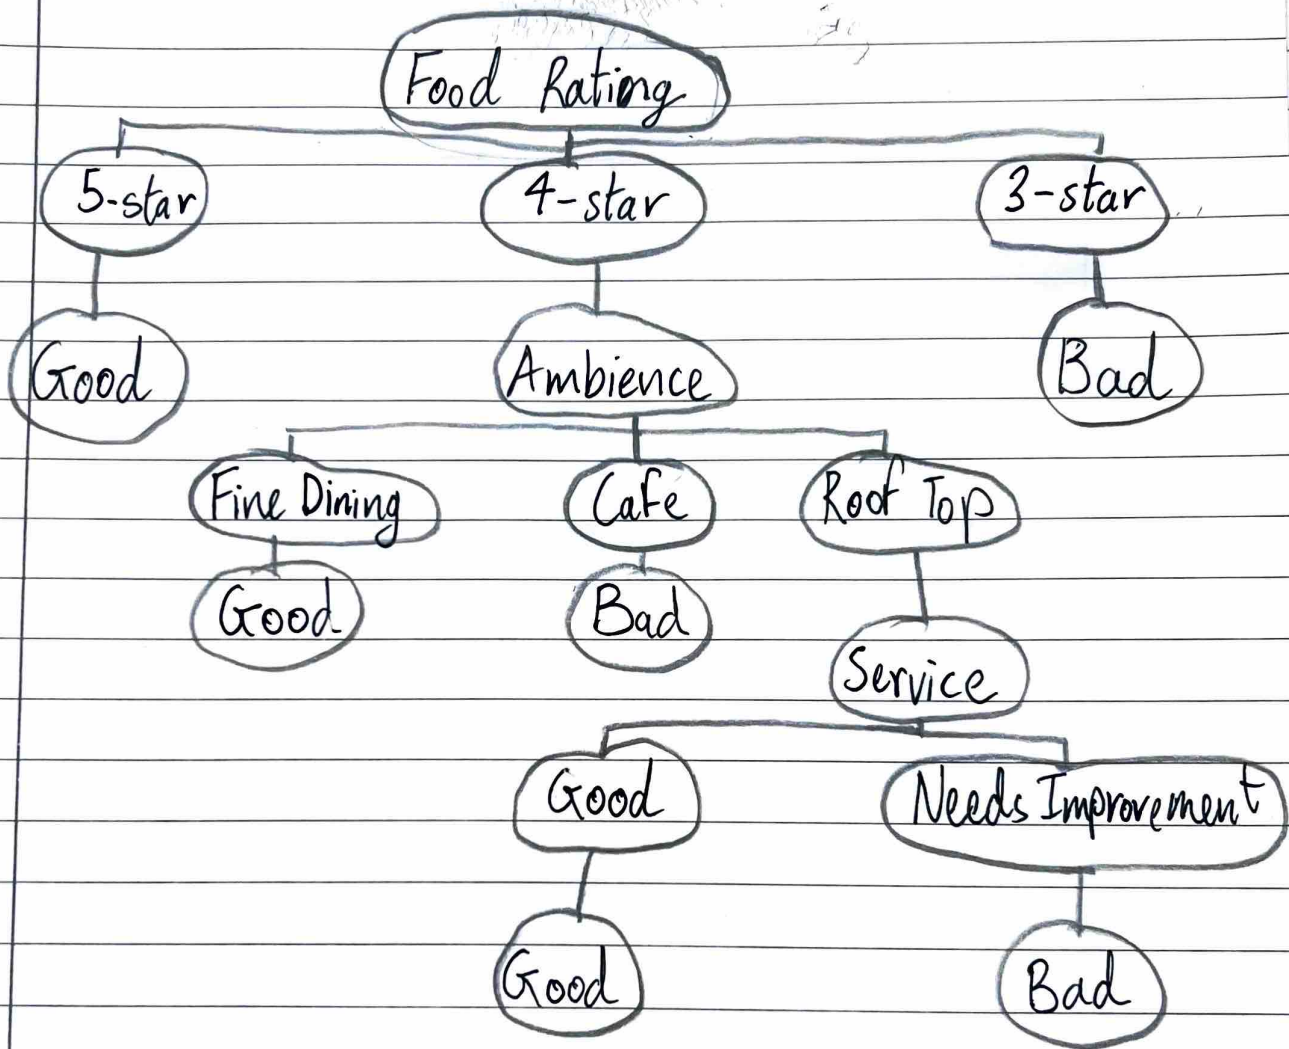 Food Rating
5-star 4-star 3-star
Good Ambience Bad
Fine Dining Cafe Roof Top
Good Bad
Service
Good Needs Improvement
Good Bad